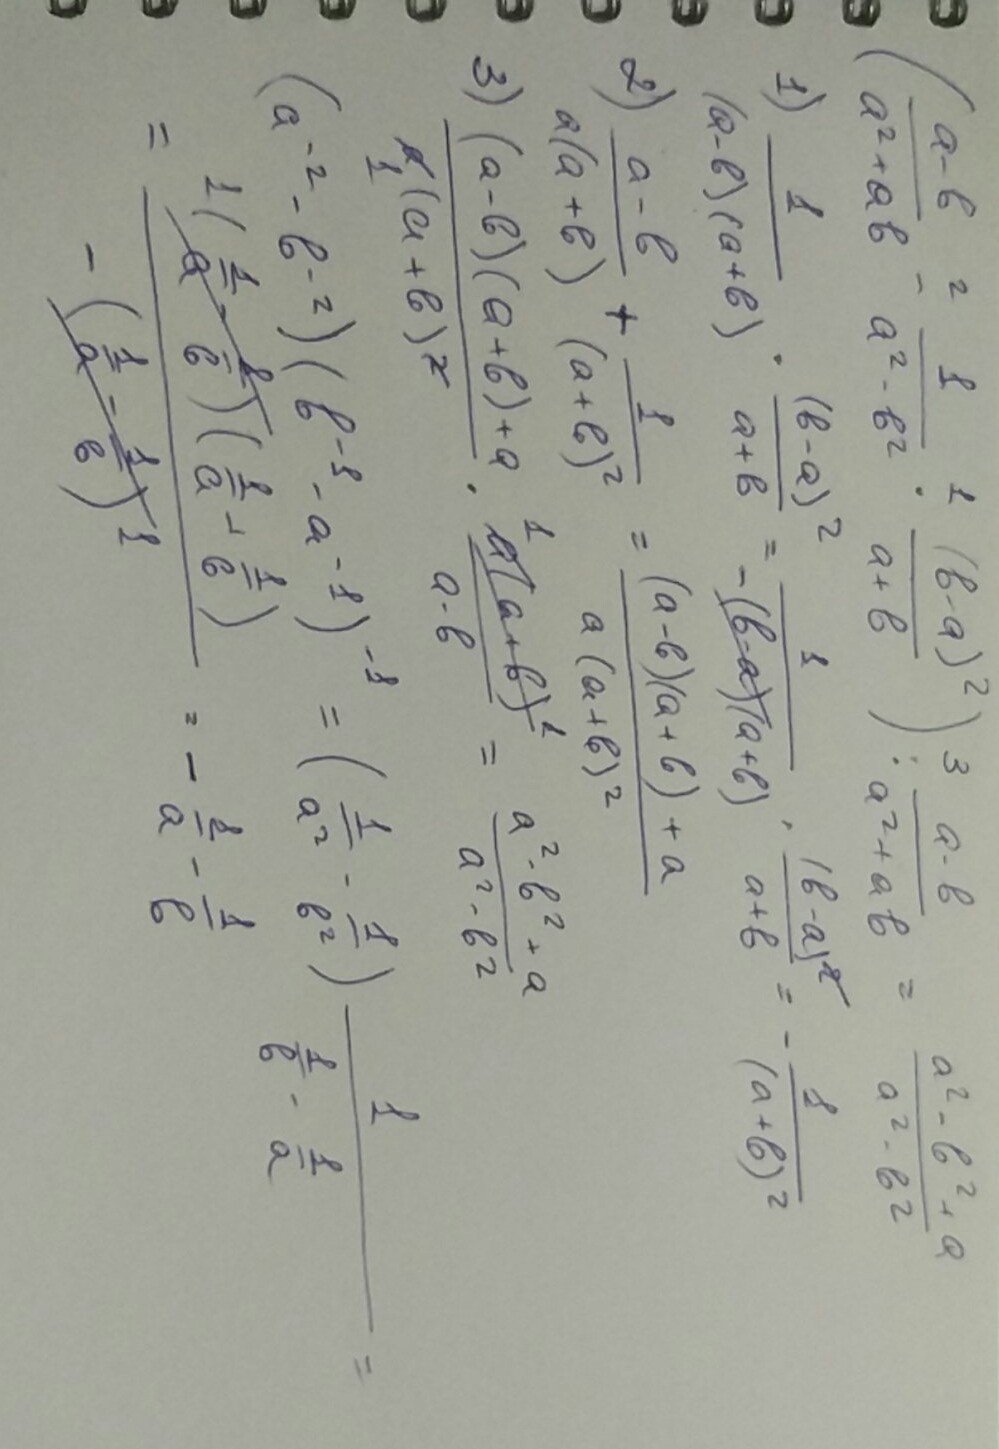 ( (a-b)/(a²+ab) -² 1/(a²-b²) ·¹ (b-a)²/(a+b) ) :³ (a-b)/(a²+ab) = (a²-b²+a)/(a²-b²)
1) 1/((a-b)(a+b)) · (b-a)²/(a+b) = 1/(-(b-a)(a+b)) · (b-a)²/(a+b) = - 1/(a+b)²
2) (a-b)/(a(a+b)) + 1/(a+b)² = ((a-b)(a+b)+a)/(a(a+b)²)
3) ((a-b)(a+b)+a)/(a(a+b)²) · a(a+b)/(a-b) = (a²-b²+a)/(a²-b²)
(a⁻² - b⁻²)(b⁻¹ - a⁻¹)⁻¹ = (1/a² - 1/b²) 1/(1/b - 1/a) =
= (1/a - 1/b)(1/a + 1/b) / -(1/a - 1/b) = - 1/a - 1/b